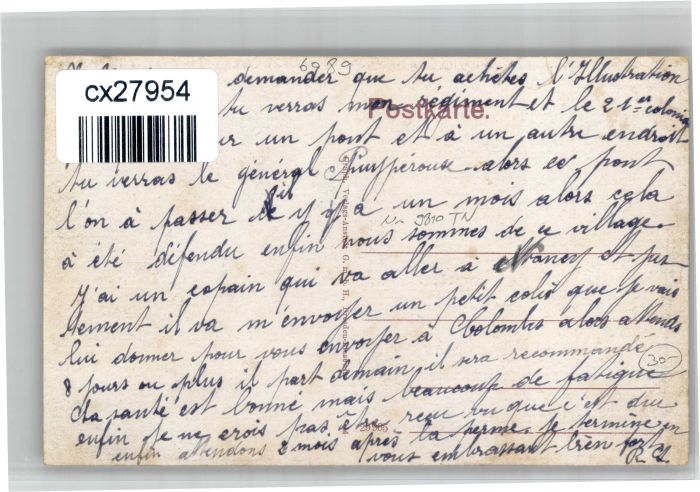 6989
demander que tu achètes l'Illustration
cx27954
tu verras mon régiment et le 21er colonial
Postkarte.
un pont et à un autre endroit
tu verras le général Puypéroux alors ce pont
l'on à passer il y a un mois alors cela
N- 9810 TN
à été défendu enfin nous sommes de ce village.
J'ai un copain qui va aller à Nancy et jus
tement il va m'envoyer un petit colis que je vais
lui donner pour vous envoyer à Colombes alors attends
8 jours ou plus il part demain il sera recommandé
30-
Ma santé est bonne mais beaucoup de fatigue
enfin je ne crois pas être reçu vu que c'est dur
enfin attendons 2 mois après la perme. je termine en
vous embrassant bien fort
R. L.